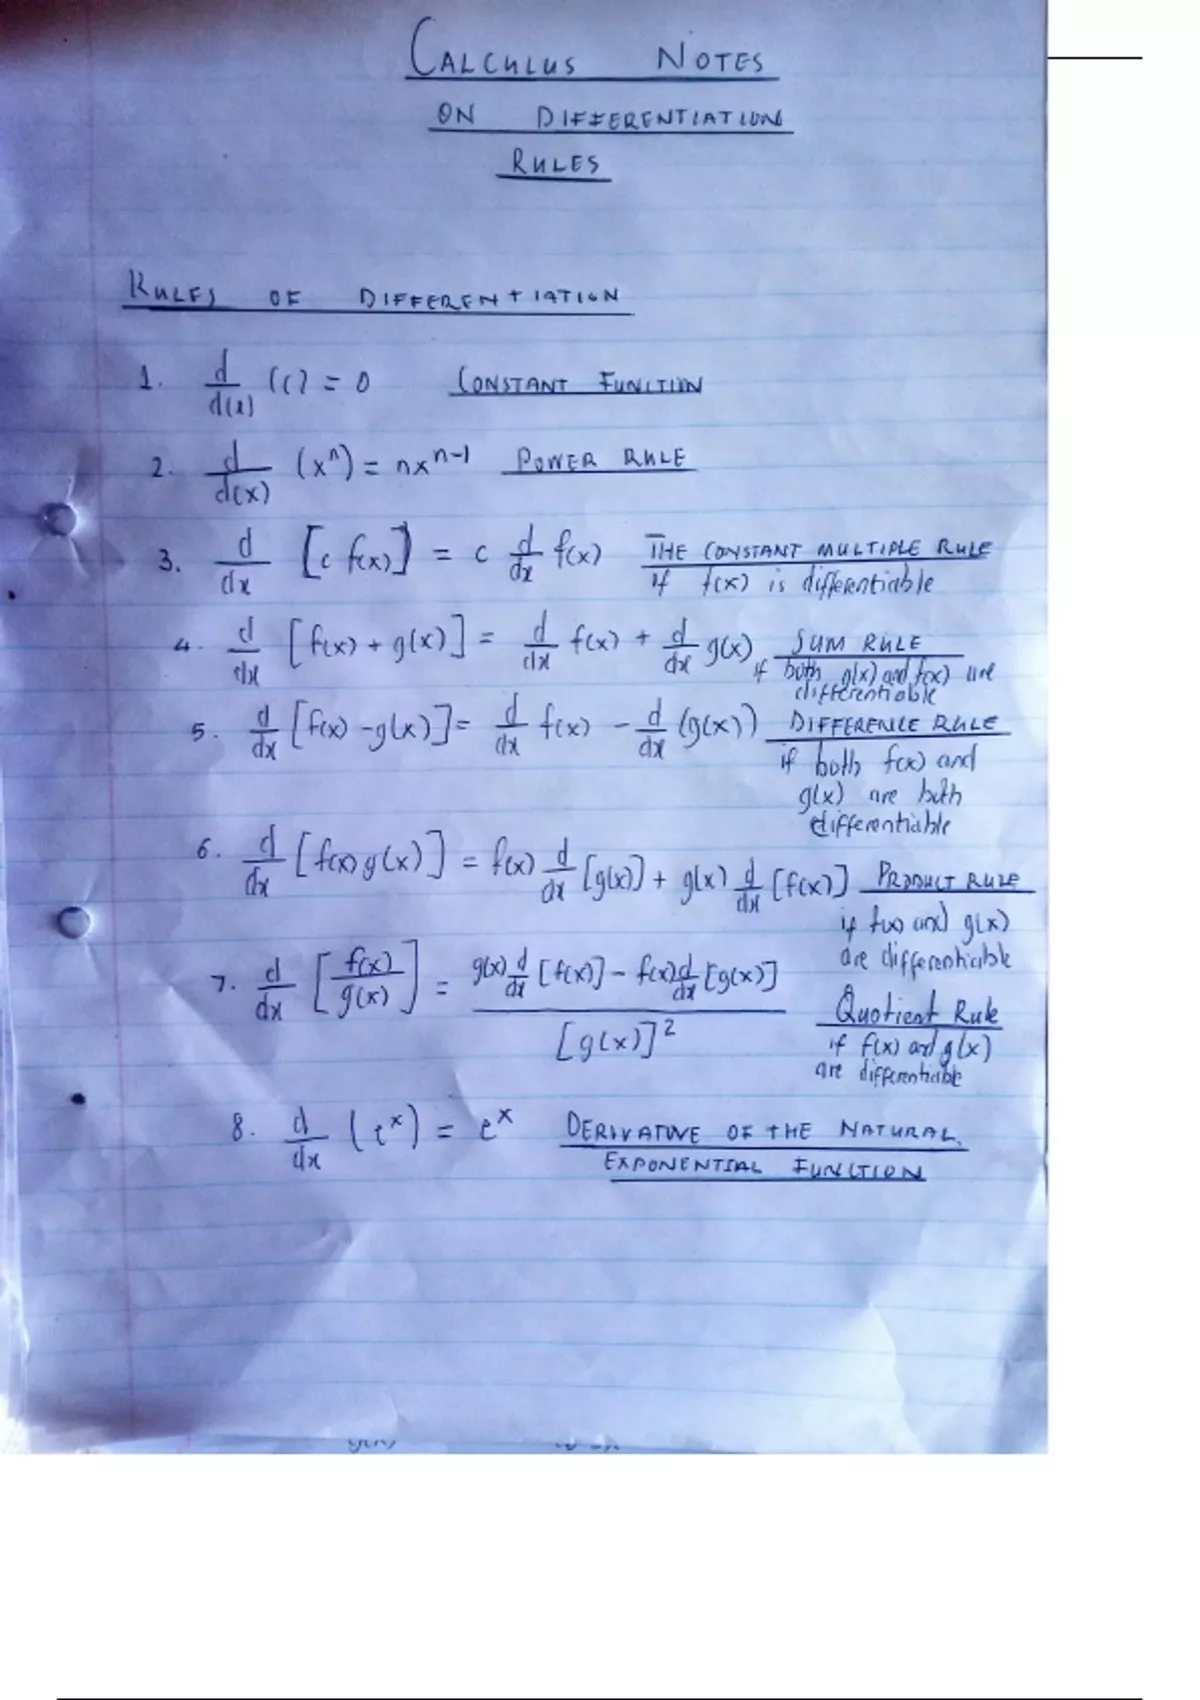 CALCULUS NOTES
ON DIFFERENTIATION
RULES
RULES OF DIFFERENTIATION
1. d/d(x) (c) = 0 CONSTANT FUNCTION
2. d/d(x) (xⁿ) = nxⁿ⁻¹ POWER RULE
3. d/dx [c f(x)] = c d/dx f(x) THE CONSTANT MULTIPLE RULE
if f(x) is differentiable
4. d/dx [f(x) + g(x)] = d/dx f(x) + d/dx g(x) SUM RULE
if both g(x) and f(x) are
differentiable
5. d/dx [f(x) - g(x)] = d/dx f(x) - d/dx (g(x)) DIFFERENCE RULE
if both f(x) and
g(x) are both
differentiable
6. d/dx [f(x) g(x)] = f(x) d/dx [g(x)] + g(x) d/dx [f(x)] PRODUCT RULE
if f(x) and g(x)
are differentiable
7. d/dx [f(x)/g(x)] = g(x) d/dx [f(x)] - f(x) d/dx [g(x)] / [g(x)]² Quotient Rule
if f(x) and g(x)
are differentiable
8. d/dx (eˣ) = eˣ DERIVATIVE OF THE NATURAL
EXPONENTIAL FUNCTION